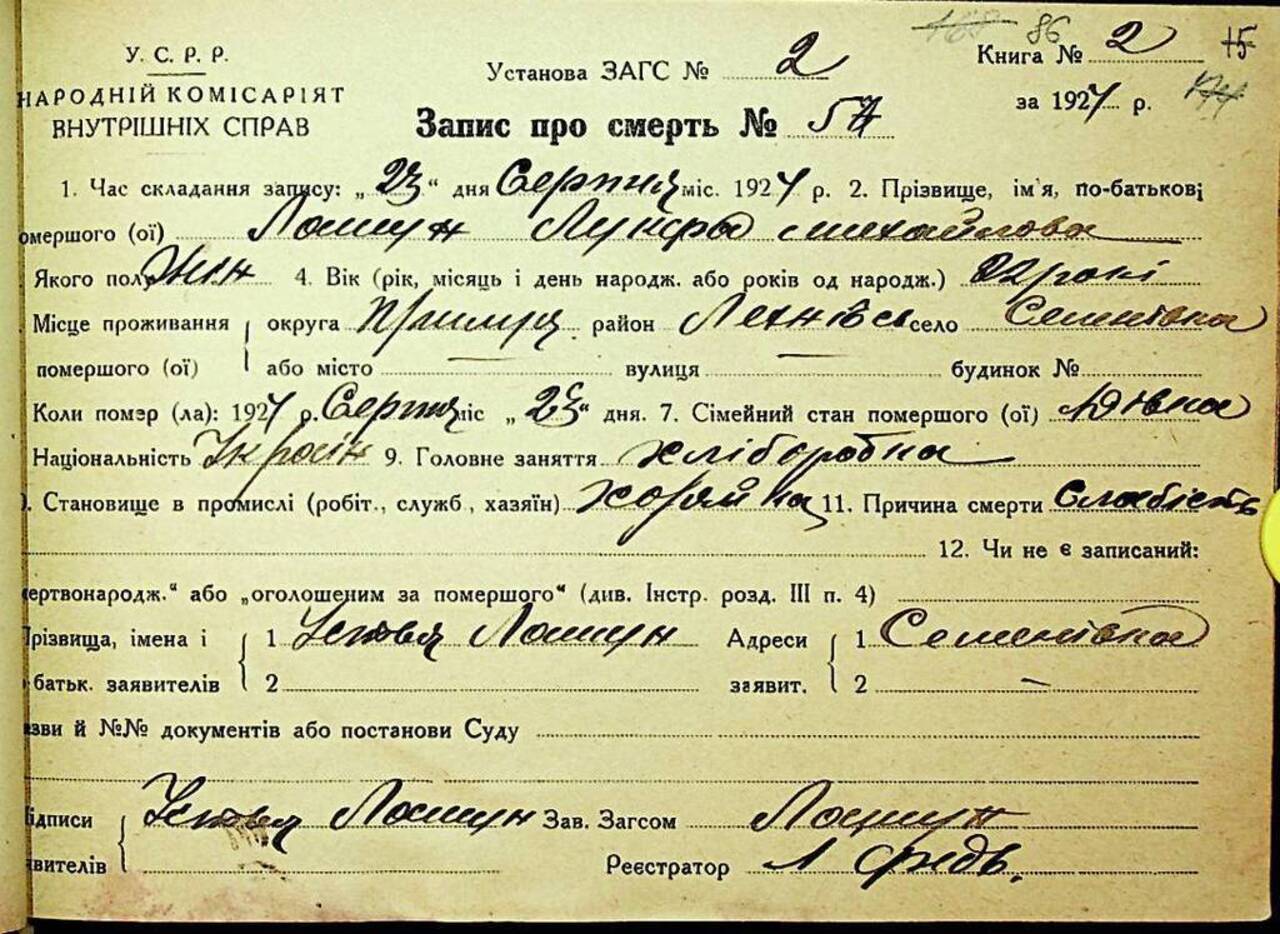 86
У. С. Р. Р.
НАРОДНІЙ КОМІСАРІЯТ
ВНУТРІШНІХ СПРАВ
Установа ЗАГС № 2
Книга № 2 15
за 1927 р.
Запис про смерть № 57
1. Час складання запису: „23“ дня Серпня міс. 1927 р. 2. Прізвище, ім'я, по-батькові
омершого (ої) Лошун Михайлова
Якого полу жін 4. Вік (рік, місяць і день народж. або років од народж.) роки
Місце проживання округа район село Семенівка
помершого (ої) або місто — вулиця — будинок №
Коли помэр (ла): 1927 р. Серпня міс „23“ дня. 7. Сімейний стан помершого (ої)
Національність Україн 9. Головне заняття хліборобка
. Становище в промислі (робіт., служб, хазяїн) 11. Причина смерти Слабість
12. Чи не є записаний:
ертвонародж.“ або „оголошеним за помершого“ (див. Інстр. розд. III п. 4)
Прізвища, імена і 1 Лошун Адреси 1 Семенівка
батьк. заявителів 2 заявит. 2 —
зви й №№ документів або постанови Суду
ідписи Лошун Зав. Загсом Лошун
явителів Реєстратор